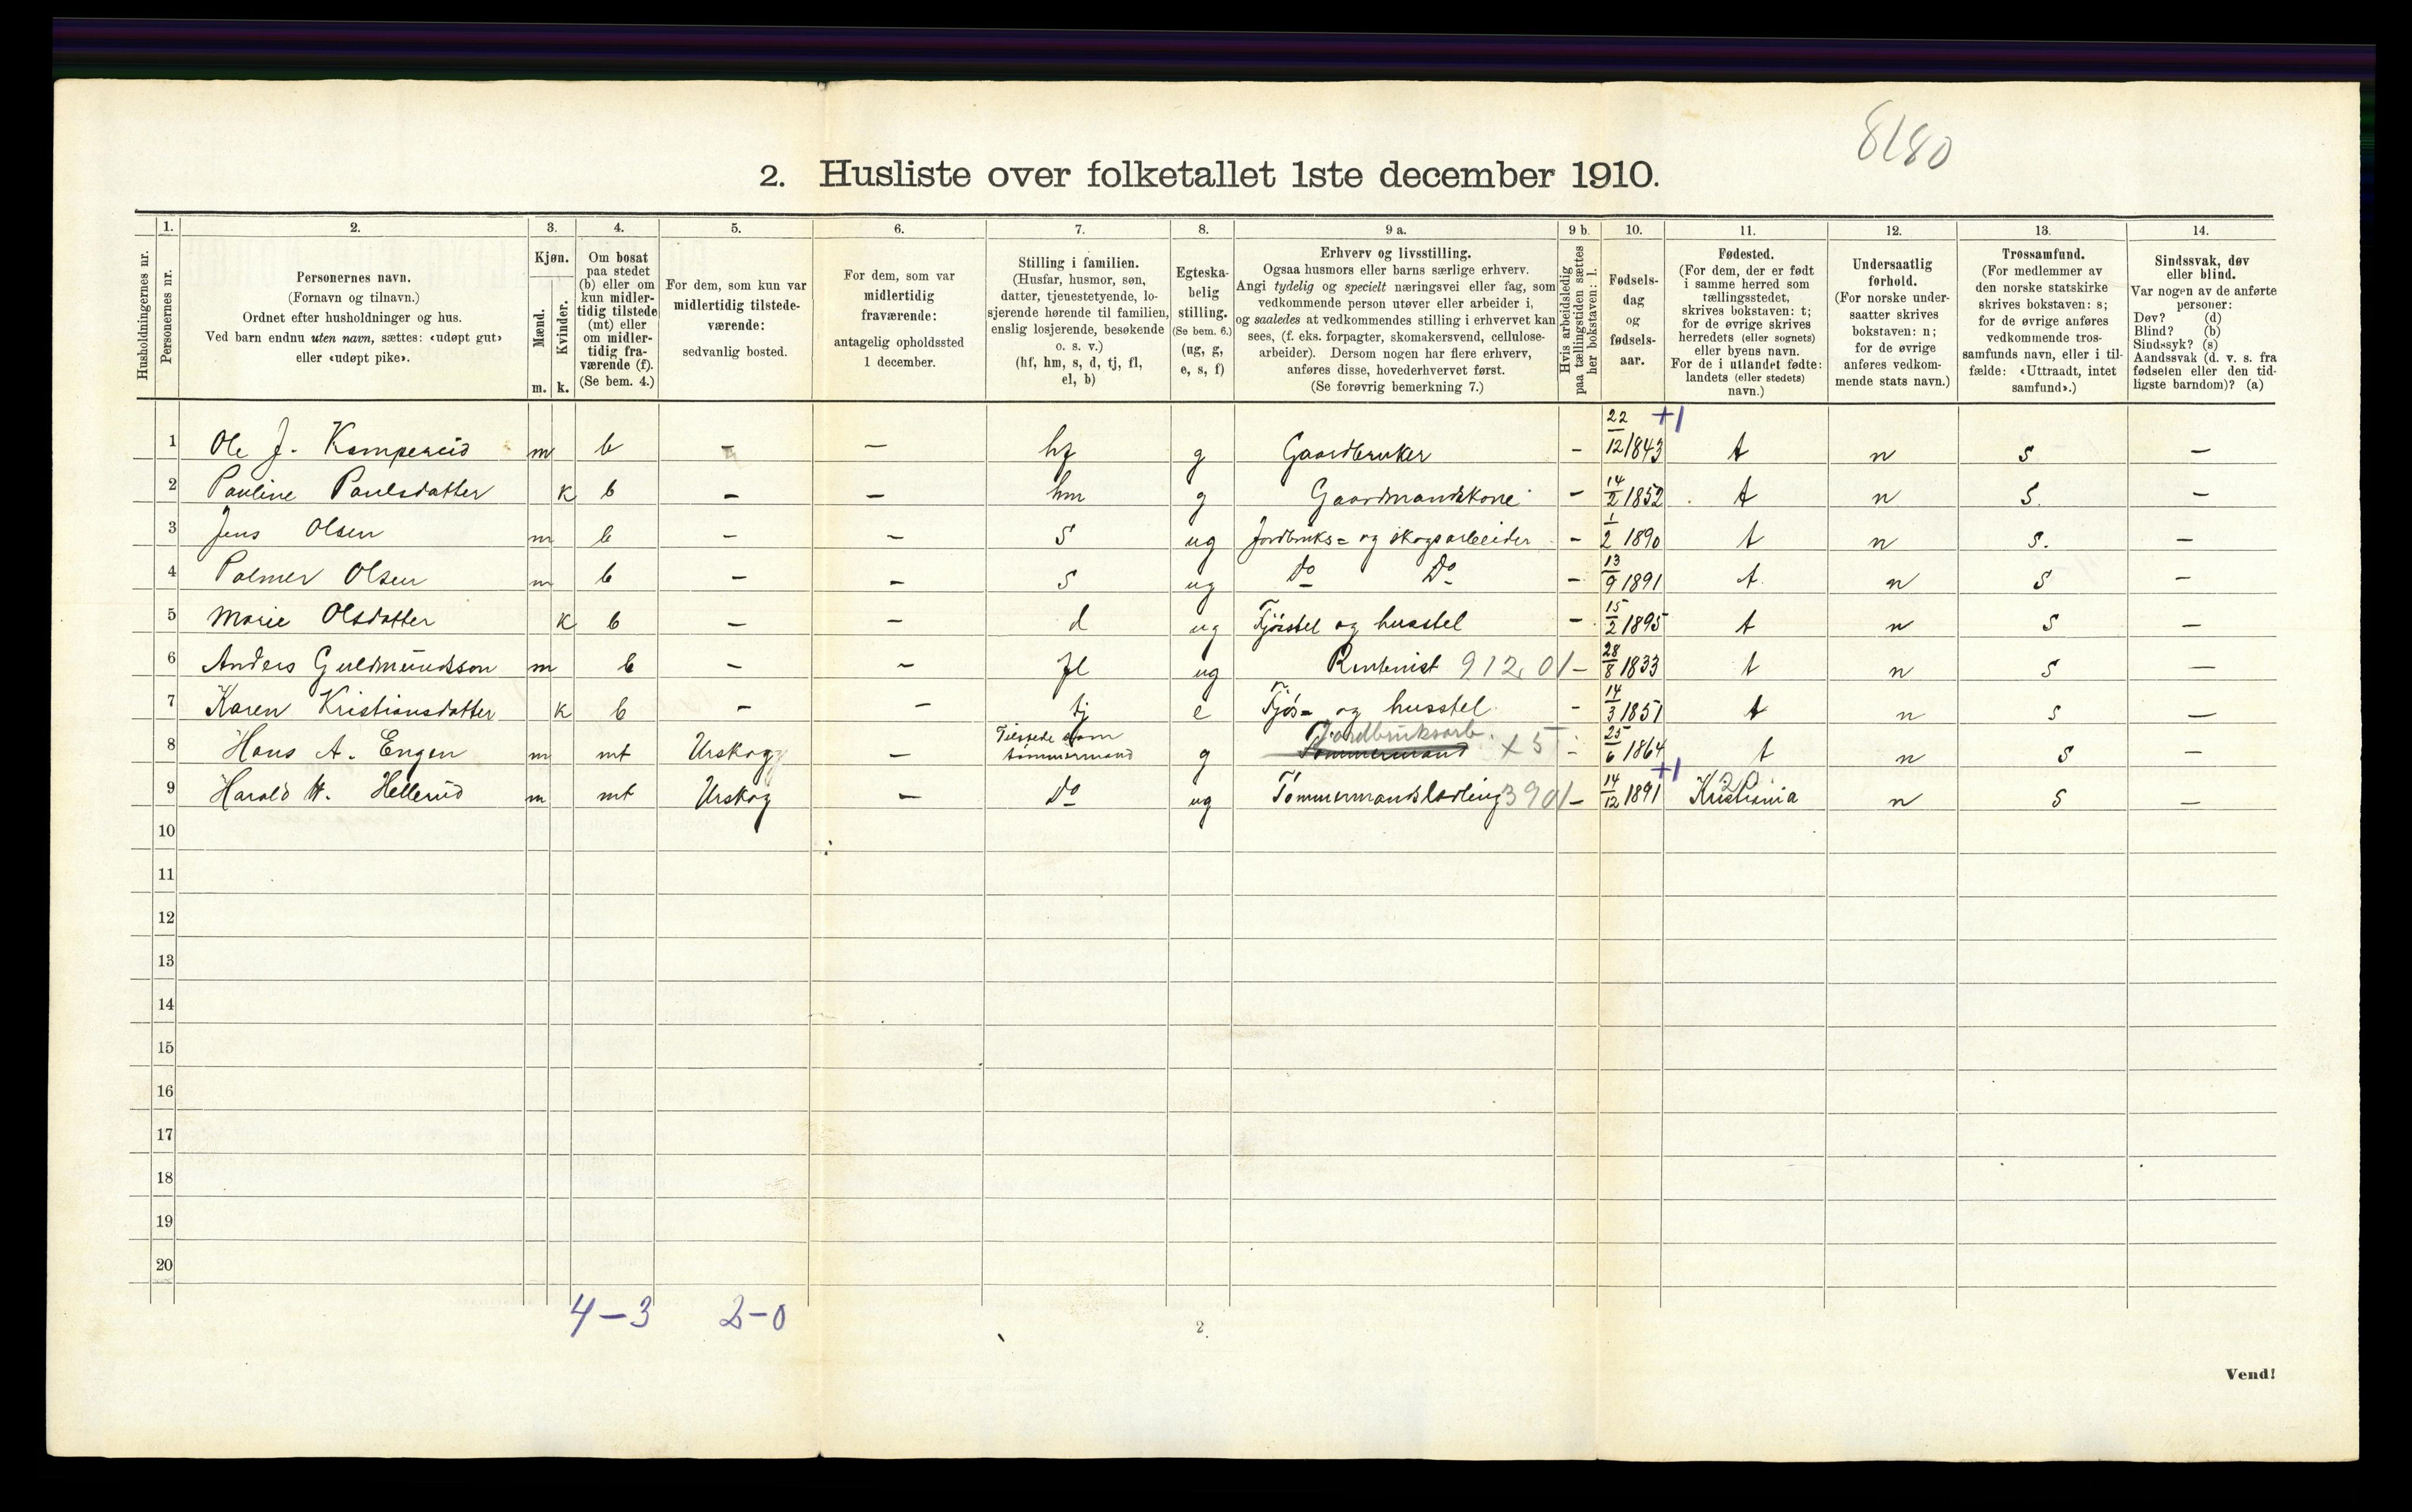 8180
2. Husliste over folketallet 1ste december 1910.
Husholdningernes nr.
1. Personernes nr.
2. Personernes navn. (Fornavn og tilnavn.) Ordnet efter husholdninger og hus. Ved barn endnu uten navn, sættes: «udøpt gut» eller «udøpt pike».
3. Kjøn. Mænd. m. Kvinder. k.
4. Om bosat paa stedet (b) eller om kun midlertidig tilstede (mt) eller om midlertidig fraværende (f). (Se bem. 4.)
5. For dem, som kun var midlertidig tilstedeværende: sedvanlig bosted.
6. For dem, som var midlertidig fraværende: antagelig opholdssted 1 december.
7. Stilling i familien. (Husfar, husmor, søn, datter, tjenestetyende, losjerende hørende til familien, enslig losjerende, besøkende o. s. v.) (hf, hm, s, d, tj, fl, el, b)
8. Egteskabelig stilling. (Se bem. 6.) (ug, g, e, s, f)
9 a. Erhverv og livsstilling. Ogsaa husmors eller barns særlige erhverv. Angi tydelig og specielt næringsvei eller fag, som vedkommende person utøver eller arbeider i, og saaledes at vedkommendes stilling i erhvervet kan sees, (f. eks. forpagter, skomakersvend, cellulosearbeider). Dersom nogen har flere erhverv, anføres disse, hovederhvervet først. (Se forøvrig bemerkning 7.)
9 b. Hvis arbeidsledig paa tællingstiden sættes her bokstaven: l.
10. Fødselsdag og fødselsaar.
11. Fødested. (For dem, der er født i samme herred som tællingsstedet, skrives bokstaven: t; for de øvrige skrives herredets (eller sognets) eller byens navn. For de i utlandet fødte: landets (eller stedets) navn.)
12. Undersaatlig forhold. (For norske undersaatter skrives bokstaven: n; for de øvrige anføres vedkommende stats navn.)
13. Trossamfund. (For medlemmer av den norske statskirke skrives bokstaven: s; for de øvrige anføres vedkommende trossamfunds navn, eller i tilfælde: «Uttraadt, intet samfund».)
14. Sindssvak, døv eller blind. Var nogen av de anførte personer: Døv? (d) Blind? (b) Sindssyk? (s) Aandssvak (d. v. s. fra fødselen eller den tidligste barndom)? (a)
1 Ole J. Kampeseid m b - - hf g Gaardbruker - 22/12 1843 +1 t n S -
2 Pauline Paulsdatter k b - - hm g Gaardmandskone - 14/2 1852 t n S. -
3 Jens Olsen m b - - S ug Jordbruks= og skogsarbeider - 1/2 1890 t n S. -
4 Palmer Olsen m b - - S ug Do Do - 13/9 1891 t n S -
5 Marie Olsdatter k b - - d ug Fjøsstel og husstel - 15/2 1895 t n S -
6 Anders Guldmundsson m b - - fl ug Rentenist 912,01 - 28/8 1833 t n S -
7 Karen Kristiansdatter k b - - tj e Fjøs= og husstel - 14/3 1851 t n S -
8 Hans A. Engen m mt Urskog - Tilstede som tømmermand g Tømmermand Jordbruksarb. x 5 - 25/6 1864 t n S -
9 Harald H. Hellerud m mt Urskog - Do ug Tømmermandslærling 3901 - 14/12 1891 +1 Kristiania n S -
10
11
12
13
14
15
16
17
18
19
20
4-3 2-0
2
Vend!